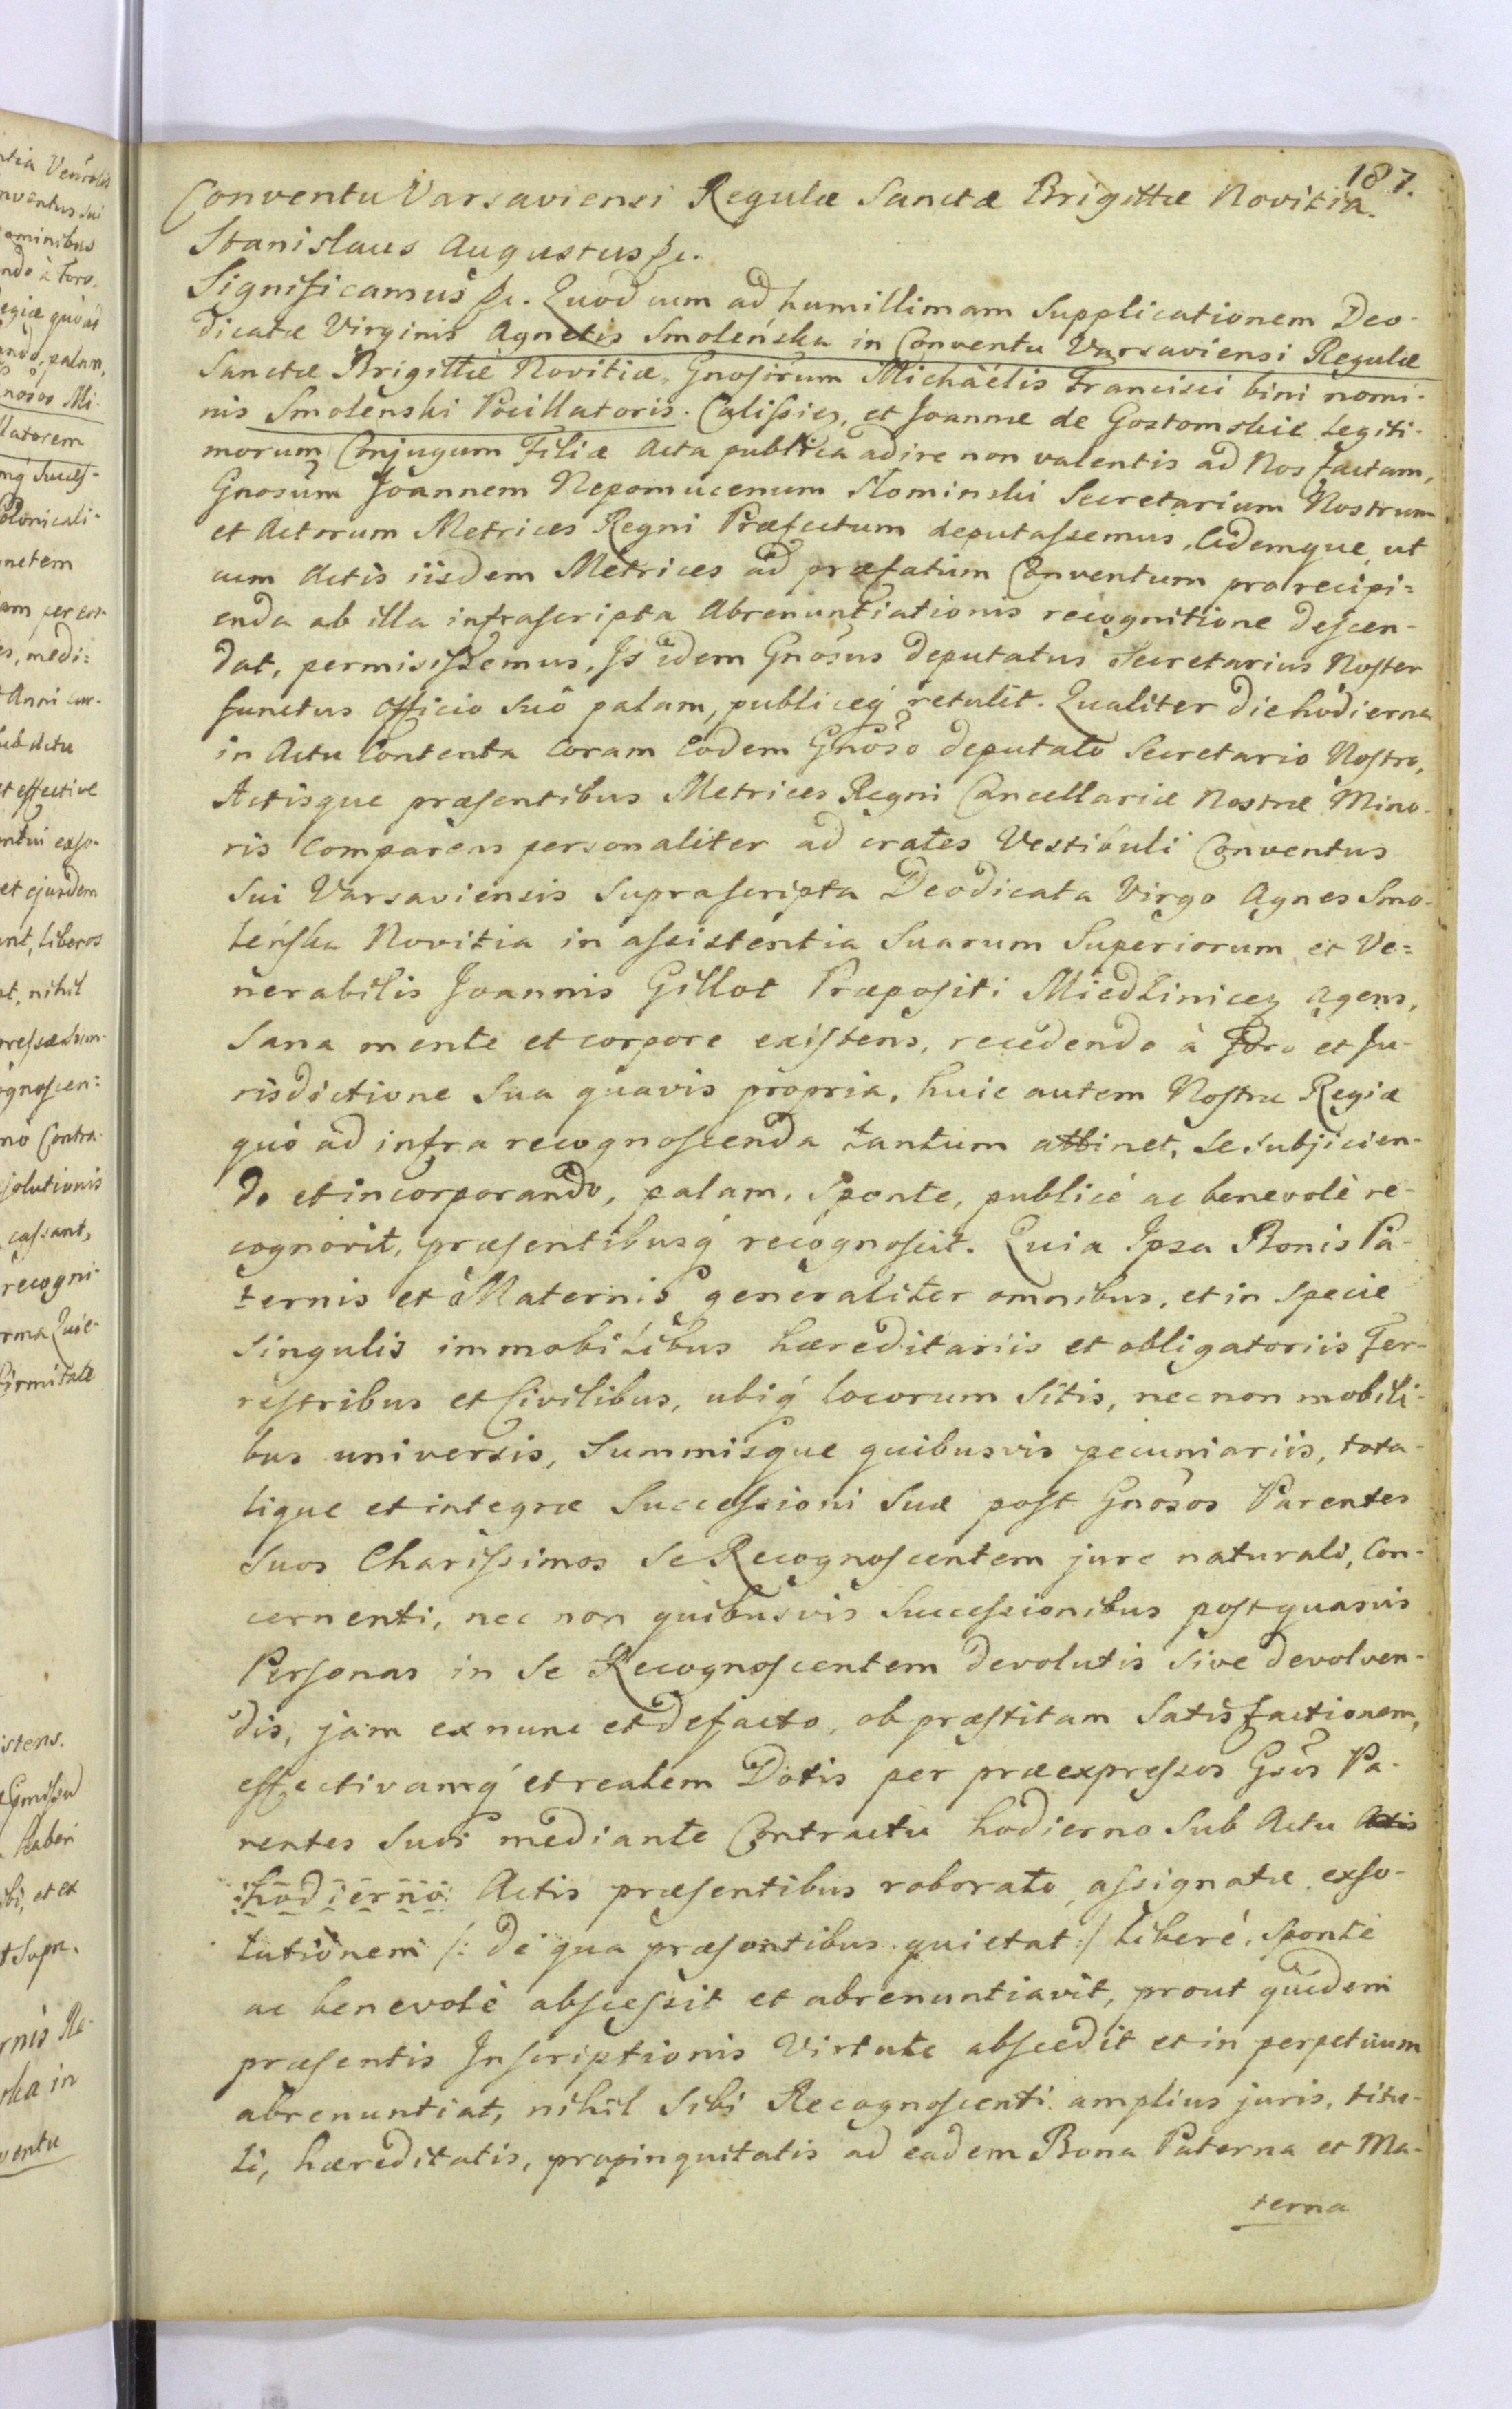 187.
Conventu Varsaviensi Regulæ Sanctæ Brigittæ Novitia.
Stanislaus Augustus &c.
Significamus &c. Quod cum ad humillimam Supplicationem Deo-
dicatæ Virginis Agnetis Smoleńska in Conventu Varsaviensi Regulæ
Sanctæ Brigittæ Novitiæ, Gnosorum Michäelis Francisci bini nomi-
nis Smoleński Pocillatoris Calissien, et Joannæ de Gostomskie Legiti-
morum Conjugum Filiæ Acta publica adire non valentis ad Nos factam,
Gnosum Joannem Nepomucenum Słominski Secretarium Nostrum
et Actorum Metrices Regni Præfectum deputassemus, Eidemque, ut
cum Actis iisdem Metrices ad præfatum Conventum pro recipi=
enda ab illa infrascripta Abrenuntiationis recognitione descen-
dat, permisissemus, Is idem Gnosus deputatus Secretarius Noster
functus officio suo palam, publiceq́ retulit. Qualiter die hodierna
in Actu Contenta Coram Eodem Gnoso deputato Secretario Nostro,
Actisque præsentibus Metrices Regni Cancellariæ Nostræ Mino-
ris Comparens personaliter ad crates Vestibuli Conventus
Sui Varsaviensis Suprascripta Deodicata Virgo Agnes Smo-
leńska Novitia in assistentia Suarum Superiorum et Ve=
nerabilis Joannis Gillot Præpositi Miedzinicen Agens,
Sana mente et corpore existens, recedendo à Foro et Ju-
risdictione Sua quavis propria, huic autem Nostræ Regiæ
quò ad infra recognoscenda tantum attinet, se subjicien-
do et incorporando, palam, sponte, publicè ac benevolè re-
cognovit, præsentibusq́ recognoscit. Quia Ipsa Bonis Pa-
ternis et Maternis generaliter omnibus, et in specie
singulis immobilibus hæreditariis et obligatoriis Ter-
restribus et Civilibus, ubiq́ locorum sitis, nec non mobili-
bus universis, Summisque quibusvis pecuniariis, tota-
lique et integræ Successioni Suæ post Gnosos Parentes
Suos Charissimos Se Recognoscentem jure naturali, Con-
cernenti, nec non quibusvis Successionibus post quasvis
Personas in Se Recognoscentem devolutis sive devolven-
dis, jam ex nunc et de facto, ob præstitam Satisfactionem,
effectivamq́ et realem Dotis per præexpressos Gsos Pa-
rentes Suos mediante Contractu hodierno Sub Actu Actis
hodierno Actis præsentibus roborato, assignatæ exso-
lutionem /: de qua præsentibus quietat :/ liberè, sponte
ac benevolè abscessit et abrenuntiavit, prout quidem
præsentis Inscriptionis Virtute abscedit et in perpetuum
abrenuntiat, nihil Sibi Recognoscenti amplius juris, titu-
li, hæreditatis, propinquitatis ad eadem Bona Paterna et Ma-
terna